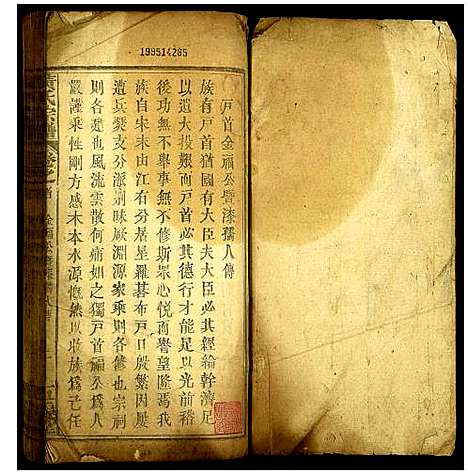 199514285
戶首金福公暨漆孺人傳
族有戶首猶國有大臣夫大臣必其經綸幹濟足
以遺大投艱而戶首必其德行才能足以光前裕
後功無不舉事無不修斯衆心悅而譽望隆焉我
族自宋末由江右分居星羅碁布戶口殷繁因屢
遭兵燹支分派別昧厥淵源家乘則各修也宗祠
則各建也風流雲散何痛如之獨戶首福公爲人
嚴謹秉性剛方感木本水源慨然以收族爲己任
氏宗譜